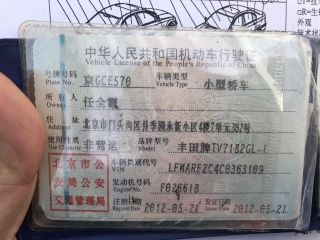 中华人民共和国机动车行驶证
Vehicle License of the People's Republic of China
号牌号码 京GCE570 车辆类型 小型轿车
Plate No. Vehicle Type
所有人 任全
Owner
住址 北京市门头沟区月季园永新小区4楼7单元302号
使用性质 非营运 品牌型号 丰田牌TV7182GL-I
Use Character
北京市公 车辆识别代号 LFMARE2C4C0363109
安局公安 VIN
交通管理局 发动机号码 F026618
Engine No.
注册日期 2012-05-21 发证日期 2012-05-21